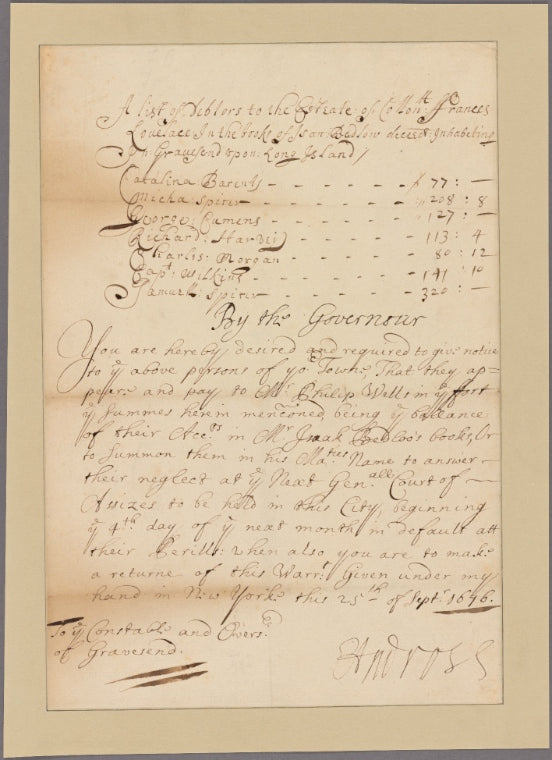 A list of Debtors to the Estate of Collon^ll ffrances
Lovelace In the booke of Isan Bedlow decest: Inhabeting
In: Gravesend upon: Long Island /
Catalina Barents - - - - - - 77 : —
Micha Spicer - - - - - - 208 : 8
George: Cumens - - - - - - 127 : —
Richard: Harvei - - - - - 113 : 4
Charlis: Morgan - - - - - 80 : 12
Cap^t: Wilkins - - - - - - 141 : 10
Samuell: Spicer - - - - - 320 : —
By the Governour
You are hereby desired and required to give notice
to y^e above persons of yo^r Towne, That they ap=
peare and pay to M^r Philip Wells in y^e ffort
y^e summes herein menconed, being y^e ballance
of their Acc^os in M^r Isaak Bedloo's books, Or
to summon them in his Ma^ties Name to answer
their neglect at y^e Next Gen^all Court of
Assizes to be held in this City, beginning
y^e 4^th day of y^e next month in default att
their Perills: when also you are to make
a returne of this Warr^t Given under my
hand in New Yorke this 25^th of Sept^r 1676.
To y^e Constable and Overs^rs
of Gravesend.
EAndross